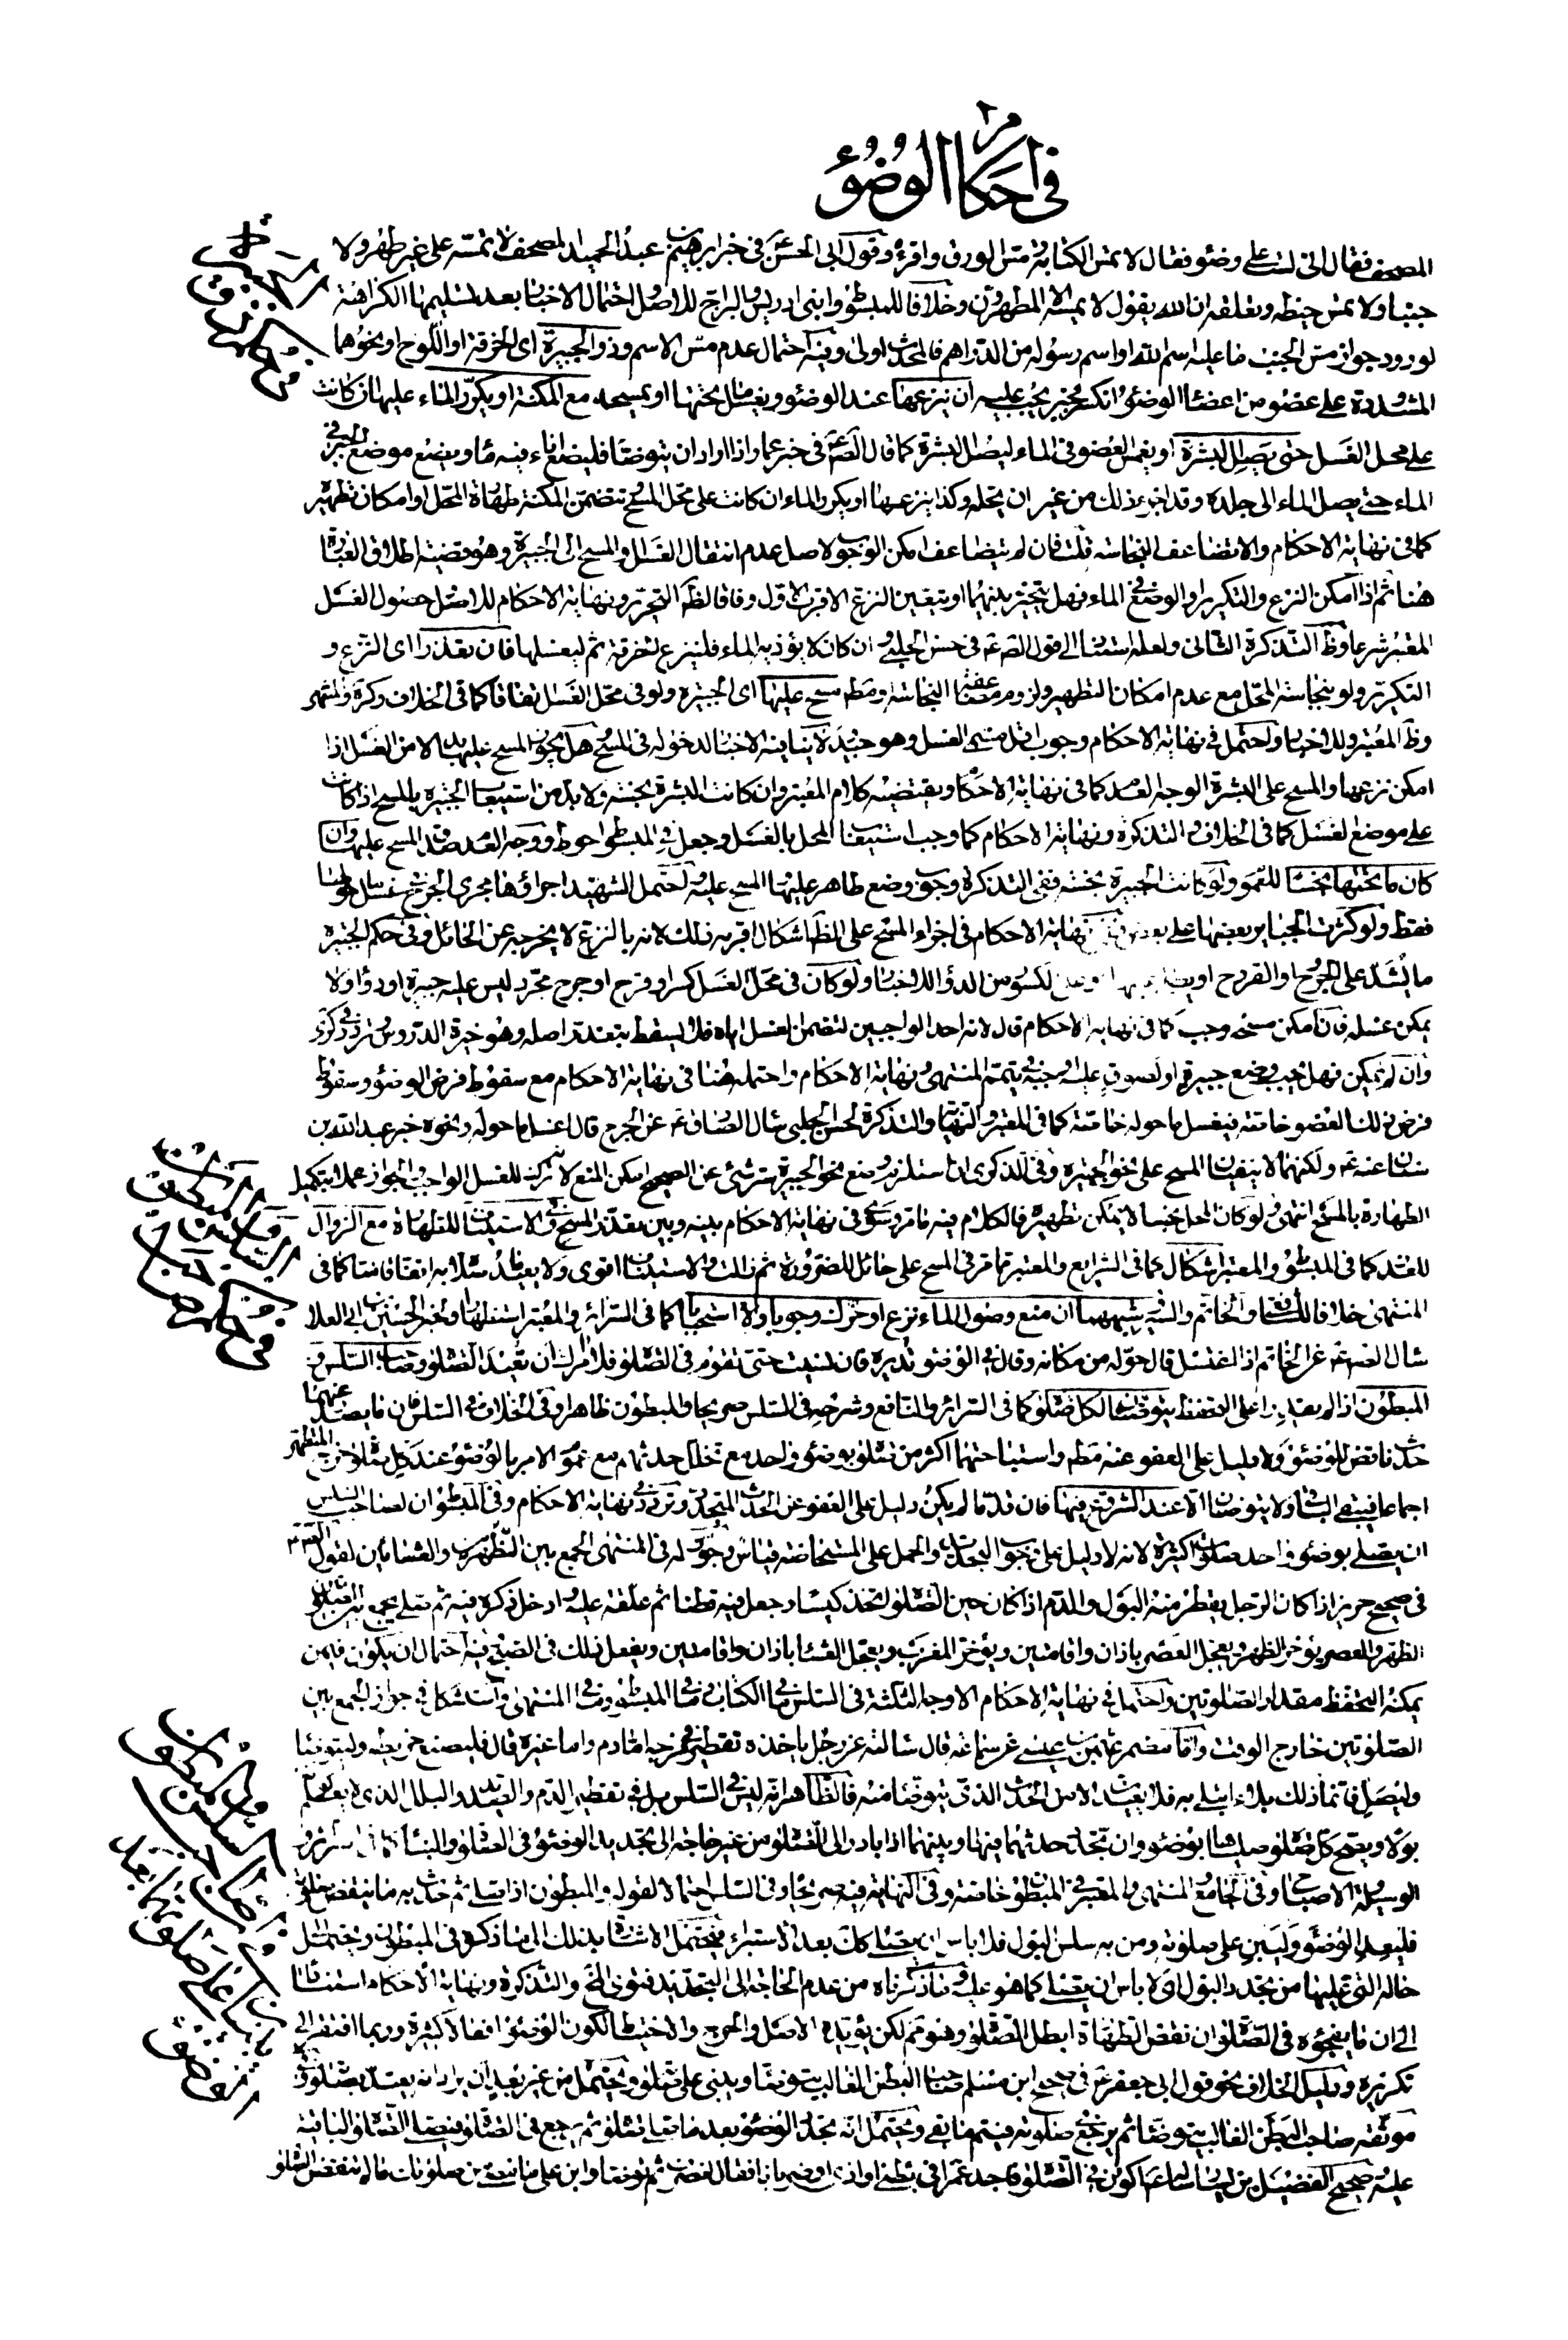 في احكام الوضوء
المصحف فقال اني لست على وضوء فقال لا تمس الكتابة ومس الورق واقرءه وقول ابي الحسن ع في خبر ابرهيم بن عبد الحميد المصحف لا تمسه على غير طهر ولا
جنبا ولا تمس خيطه ولا تعلقه ان الله يقول لا يمسه الا المطهرون وخلافا للمبسوط وابني ادريس والبراج للاصل واحتمال الاخبار بعد تسليمها الكراهة
لورود جواز مس الجنب ما عليه اسم الله او اسم رسوله من الدراهم فالمحدث اولى وفيه احتمال عدم مس الاسم وذو الجبيرة اى الخرقة او اللوح او نحوهما
المشدودة على عضو من اعضاء الوضوء انكسر فجبر يجب عليه ان ينزعها عند الوضوء ويغسل ما تحتها او يمسحه مع المكنة او يكرر الماء عليها ان كانت
على محل الغسل حتى يصل البشرة او يغمس العضو في الماء ليصل البشرة كما قال الصادق ع في خبر عمار اذا اراد ان يتوضا فليضع اناء فيه ماء ويضع موضع الجبر في
الماء حتى يصل الماء الى جلده وقد اجزءه ذلك من غير ان يحله وكذا ينزعها او يكرر الماء ان كانت على محل المسح تتضمن المكنة طهارة المحل او امكان تطهيره
كما في نهاية الاحكام والا تضاعف النجاسة قلت فان لم يتضاعف امكن الوجوب لاصل عدم انتقال الغسل والمسح الى الجبيرة وهو قضية اطلاق العبارة
هنا ثم اذا امكن النزع والتكرير او الوضع في الماء فهل يتخير بينهما او يتعين النزع الاقرب الاول وفاقا لظاهر التحرير ونهاية الاحكام للاصل وحصول الغسل
المعتبر شرعا وظ التذكرة الثاني ولعله استنادا الى قول الصادق ع في حسن الحلبي وان كان لا يؤذيه الماء فلينزع الخرقة ثم ليغسلها فان تعذرا اى النزع و
التكرير ولو بنجاسة المحل مع عدم امكان التطهير ولزوم تضاعف النجاسة ومط مسح عليها اى الجبيرة ولو في محل الغسل اتفاقا كما في الخلاف وكره والمنتهى
وظ المعتبر وللاخبار واحتمل في نهاية الاحكام وجوب اقل مسمى الغسل وهو جيد لا ينافيه الاخبار لدخوله في المسح وهل يجوز المسح عليها بدلا من الغسل اذا
امكن نزعها والمسح على البشرة الوجه العدم كما في نهاية الاحكام ويقتضيه كلام المعتبر وان كانت البشرة نجسة ولابد من استيعاب الجبيرة بالمسح اذا كانت
على موضع الغسل كما في الخلاف والتذكرة ونهاية الاحكام كما وجب استيعاب المحل بالغسل وجعل في المبسوط احوط ووجه العدم صدق المسح عليها وان
كان ما تحتها نجسا للعموم ولو كانت الجبيرة نجسة ففي التذكرة وجوب وضع طاهر عليها المسح عليه واحتمل الشهيد اجراؤها مجرى الجرح في غسل ما حولها
فقط ولو كثرت الجباير بعضها على بعض ففي نهاية الاحكام في اجزاء المسح على الظاهر اشكال اقربه ذلك لانه بالنزع لا يخرجه عن الحائل وفي حكم الجبيرة
ما يشد على الجروح والقروح او يطلى عليها وعلى الكسور من الدواء للاخبار ولو كان في محل الغسل كسر او قرح او جرح مجرد ليس عليه جبيرة او دواء ولا
يمكن غسله فان امكن مسحه وجب كما في نهاية الاحكام قال لانه احد الواجبين لتضمن الغسل اياه فلا يسقط بتعذر اصله وهو خيرة الدروس وتردد في كرى
وان لم يمكن فهل يجب وضع جبيرة او لصوق عليه ومسحه يتمم المنتهى ونهاية الاحكام واحتمله هنا في نهاية الاحكام مع سقوط فرض الوضوء وسقوط
فرض ذلك العضو خاصة فيغسل ما حوله خاصة كما في المعتبر والنهاية والتذكرة لحسن الحلبي سال الصادق ع عن الجرح قال اغسل ما حوله ونحوه خبر عبد الله بن
سنان عنه ع ولكنهما لا ينفيان المسح على نحو الجبيرة وفي الذكرى ان استلزم وضع نحو الجبيرة ستر شئ عن الصحيح امكن المنع لانه ترك للغسل الواجب والجواز عملا بتكميل
الطهارة بالمسح انتهى ولو كان المحل نجسا لا يمكن تطهيره فالكلام فيه ما مر وسوى في نهاية الاحكام بينه وبين تعذر المسح وفي الاستيناف للطهارة مع الزوال
للعذر كما في المبسوط والمعتبر اشكال كما في الشرايع والمعتبر ما مر في المسح على حائل للضرورة ثم ذلك والاستيناف اقوى ولا يعيد ما صلاه به اتفاقا منا كما في
المنتهى خلافا للشافعي والخاتم والسير وشبههما ان منع وصول الماء نزع او حرك وجوبا والا استحبابا كما في السرائر والمعتبر استظهارا ولخبر الحسين بن ابي العلا
سال الصادق ع عن الخاتم اذا اغتسل قال حوله من مكانه وقال في الوضوء تديره فان نسيت حتى تقوم في الصلوة فلا امرك ان تعيد الصلوة وصاحب السلس و
المبطون اذا لم يعتد زا على التحفظ يتوضئان لكل صلوة كما في السرائر والنافع وشرحه في السلس صريحا والمبطون ظاهرا وفي الخلاف في السلس فان ما يصدر عنهما
حدث ناقض للوضوء ولا دليل على العفو عنه مط واستباحتهما اكثر من صلوة بوضوء واحد مع تخلل حدثهم مع عموم الامر بالوضوء عند كل صلوة خرج المتطهر
اجماعا فيبقى الباقي ولا يتوضئان الا عند الشروع فيها فان قدما لم يكن دليل على العفو عن الحدث المتجدد وتردد في نهاية الاحكام وفي المبسوط ان لصاحب السلس
ان يصلى بوضوء واحد صلوات كثيرة لانه لا دليل على وجوب التجديد والحمل على المستحاضة قياس وجوز له في المنتهى الجمع بين الظهرين والعشائين لقول الصادق ع
في صحيح حريز اذا كان الرجل يقطر منه البول والدم اذا كان حين الصلوة اتخذ كيسا وجعل فيه قطنا ثم علقه عليه وادخل ذكره فيه ثم صلى يجمع بين الصلوتين
الظهر والعصر يؤخر الظهر ويعجل العصر باذان واقامتين ويؤخر المغرب ويعجل العشاء باذان واقامتين ويفعل ذلك في الصبح وفيه احتمال ان يكون فيمن
يمكنه التحفظ مقدار الصلوتين واحتمل في نهاية الاحكام الاوجه الثلثة في السلس ما في الكتاب وما في المبسوط وما في المنتهى واستشكل في جواز الجمع بين
الصلوتين خارج الوقت واما مضمر عثمان بن عيسى عن سماعة قال سالته عن رجل ياخذه تقطير في فرجه اما دم واما غيره قال فليضع خريطة وليتوضا
وليصل فانما ذلك بلاء ابتلى به فلا يعيدن الا من الحدث الذي يتوضا منه فالظاهر انه ليس في السلس بل في تقطير الدم والصديد والبلل الذي لا يعلم
بولا ويصح كل صلوة صلياها بوضوء وان تجدد حدثهما فيها وبينهما اذا بادرا الى الصلوة من غير حاجة الى تجديد الوضوء في الصلوة والبناء كما في السرائر و
الوسيلة والاصباح وفي الجامع المنتهى والمعتبر في المبطون خاصة وفي النهاية فيه صريحا وفي السلس احتمالا لقوله والمبطون اذا صلى ثم حدث به ما ينقض صلوته
فليعد الوضوء وليبن على صلوته ومن به سلس البول فلا باس ان يصلى كك بعد الاستبراء فيحتمل الاشارة بذلك الى ما ذكره في المبطون ويحتمل الى
حاله التي عليها من تجدد البول اى لا باس ان يصلى كما هو عليه وما ذكرناه من عدم الحاجة الى التجديد فتوى المخ والتذكرة ونهاية الاحكام استنادا
الى ان ما يفجؤه في الصلوة ان نقض الطهارة ابطل الصلوة وهو تم لكن يؤيده الاصل والحرج والاحتياط لكون الوضوء افعالا كثيرة وربما افتقر الى
تكريره ودليل الخلاف نحو قول ابي جعفر ع في صحيح ابن مسلم صاحب البطن الغالب يتوضا ويبني على صلوته ويحتمل من غير بعد ان يراد انه يعتد بصلوته وفي
موثقه صاحب البطن الغالب يتوضا ثم يرجع في صلوته فيتم ما بقى ويحتمل انه يجدد الوضوء بعد ما صلى صلوة ثم يرجع في الصلوة فيصلى الصلوة الباقية
عليه صحيح الفضيل بن يسار ساله ع اكون في الصلوة فاجد غمزا في بطني او اذى او ضربانا فقال انصرف ثم توضا وابن على ما مضى من صلوتك ما لم تنقض الصلوة